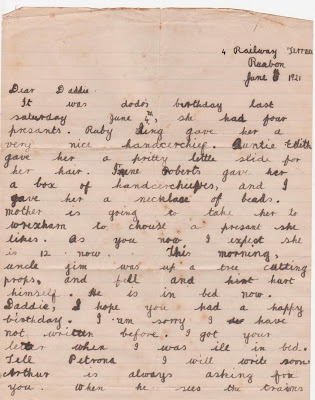 4 Railway Terrace
Ruabon
June 1921
Dear Daddie.
It was dodo's birthday last
saturday June 4th, she had four
presants. Ruby King gave her a
very nice handcercheif. Auntie Edith
gave her a pretty little slide for
her hair. Irene Roberts gave her
a box of handcercheifes, and I
gave her a necklace of beads.
mother is going to take her to
wrexham to chouse a presant she
likes. As you now I expect she
is 12 now. This morning,
uncle jim was up a tree cutting
props, and fell and hurt
himself. He is in bed now.
Daddie, I hope you had a happy
birthday. I am sorry I have
not written before. I got your
letter when I was ill in bed.
Tell Petrona I will write soon
Arthur is always asking for
you. When he sees the trains